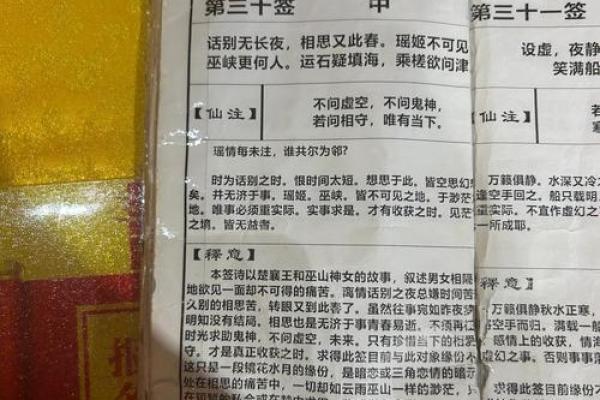 第三十签 中
话别无长夜，相思又此春。瑶姬不可见
巫峡更何人。运石疑填海，乘槎欲问津
【仙注】
不问虚空，不问鬼神，
若问相守，唯有当下。
瑶情每未注，谁共尔为邻？
时为话别之时。恨时间太短。想思于此。皆空思幻
矣。并无济于事。瑶姬，巫峡。皆不可见之地。于渺茫
地。唯事必须重实际。实事求是。才有收获之时。见茫
之境。皆无益者。
【释意】
本签诗以楚襄王和巫山神女的故事，叙述男女相隔
地欲见一面却不可得的痛苦。离情话别之夜总嫌时间苦
久别的相思苦，转眼又到此春了。虽然往事宛如昨夜
明知没有结局。相思也是无济于事青春易逝，不须再
时光求助鬼神，不问虚空，未来。只有珍惜当下的
守。才是真正收获之时。求得此签目前与此对象缘份不
这只是一段镜花水月的缘份，是暗恋或三角恋情的暗示
处在相思的痛苦中，一切却如云雨巫山一样的渺茫，只
第三十一签
设虚，夜静
笑满船
仙注】
若
寒
万籁俱静。水深又冷
逢空手回之。船只载明
实际。不宜作虚幻之
一所成耶。
意】
万籁俱静秋水正寒，
空手而归。满载一船
感情上的收获，情海
虚幻之事。否则事事落
求得此签者目前缘份